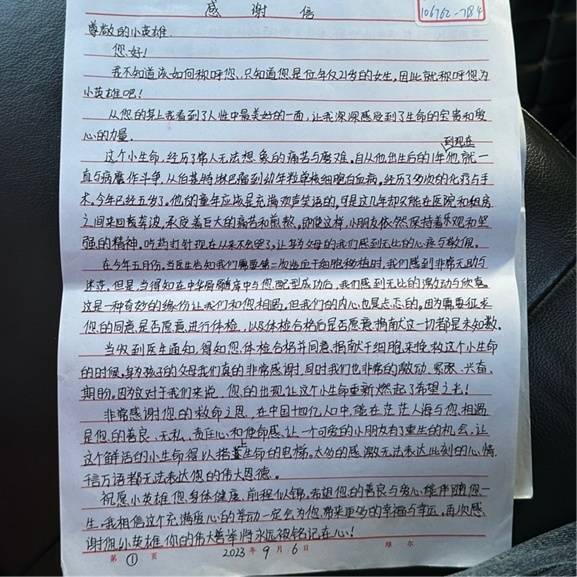 感谢信
106762-7184
尊敬的小英雄
您好!
我不知道该如何称呼您,只知道您是位年仅21岁的女生,因此就称呼您为
小英雄吧!
从您的身上我看到了人性中最美好的一面,让我深深感受到了生命的宝贵和爱
心的力量.
到现在
这个小生命,经历了常人无法想象的痛苦与磨难.自从他出生后的1年他就一
直与病魔作斗争.从伯基特淋巴瘤到幼年粒单核细胞白血病,经历了多次的化疗与手
术,今年已经五岁了,他的童年应该是充满欢声笑语的,可是这几年却只能在医院和租房
之间来回奔波,承受着巨大的痛苦和煎熬,即使这样,小朋友依然保持着乐观和坚
强的精神,吃药打针现在从来不会哭了,让身为父母的我们感到无比的心疼与敬佩。
在今年五月份,当医生告知我们需要第二次造血干细胞移植时,我们感到非常无助与
迷茫.但是,当得知在中华骨髓库中与您配型成功后,我们感到无比的激动与欣喜
这是一种奇妙的缘份让我们和您相遇,但我们的内心也是忐忑的,因为需要征求
您的同意,是否愿意进行体检,以及体检合格后是否愿意捐献这一切都是未知数.
当收到医生通知,得知您体检合格并同意捐献干细胞来挽救这个小生命
的时候,身为孩子的父母我们真的非常感谢,同时我们也非常的激动、紧张、兴奋、
期盼,因为这对于我们来说,您的出现让这个小生命重新燃起了希望之光!
非常感谢您的救命之恩,在中国十四亿人口中,能在茫茫人海与您相遇
是您的善良、无私、责任心和使命感,让一个可爱的小朋友有了重生的机会,让
这个鲜活的小生命得以搭上生命的电梯.太多的感激无法表达此刻的心情,
千言万语都无法表达您的伟大恩德.
祝愿小英雄您身体健康,前程似锦,希望您的善良与爱心能伴随您一
生,我相信这个充满爱心的举动一定会为您带来更多的幸福与幸运.再次感
谢您小英雄你的伟大善举将永远被铭记在心!
第①页 2023年9月6日 维尔